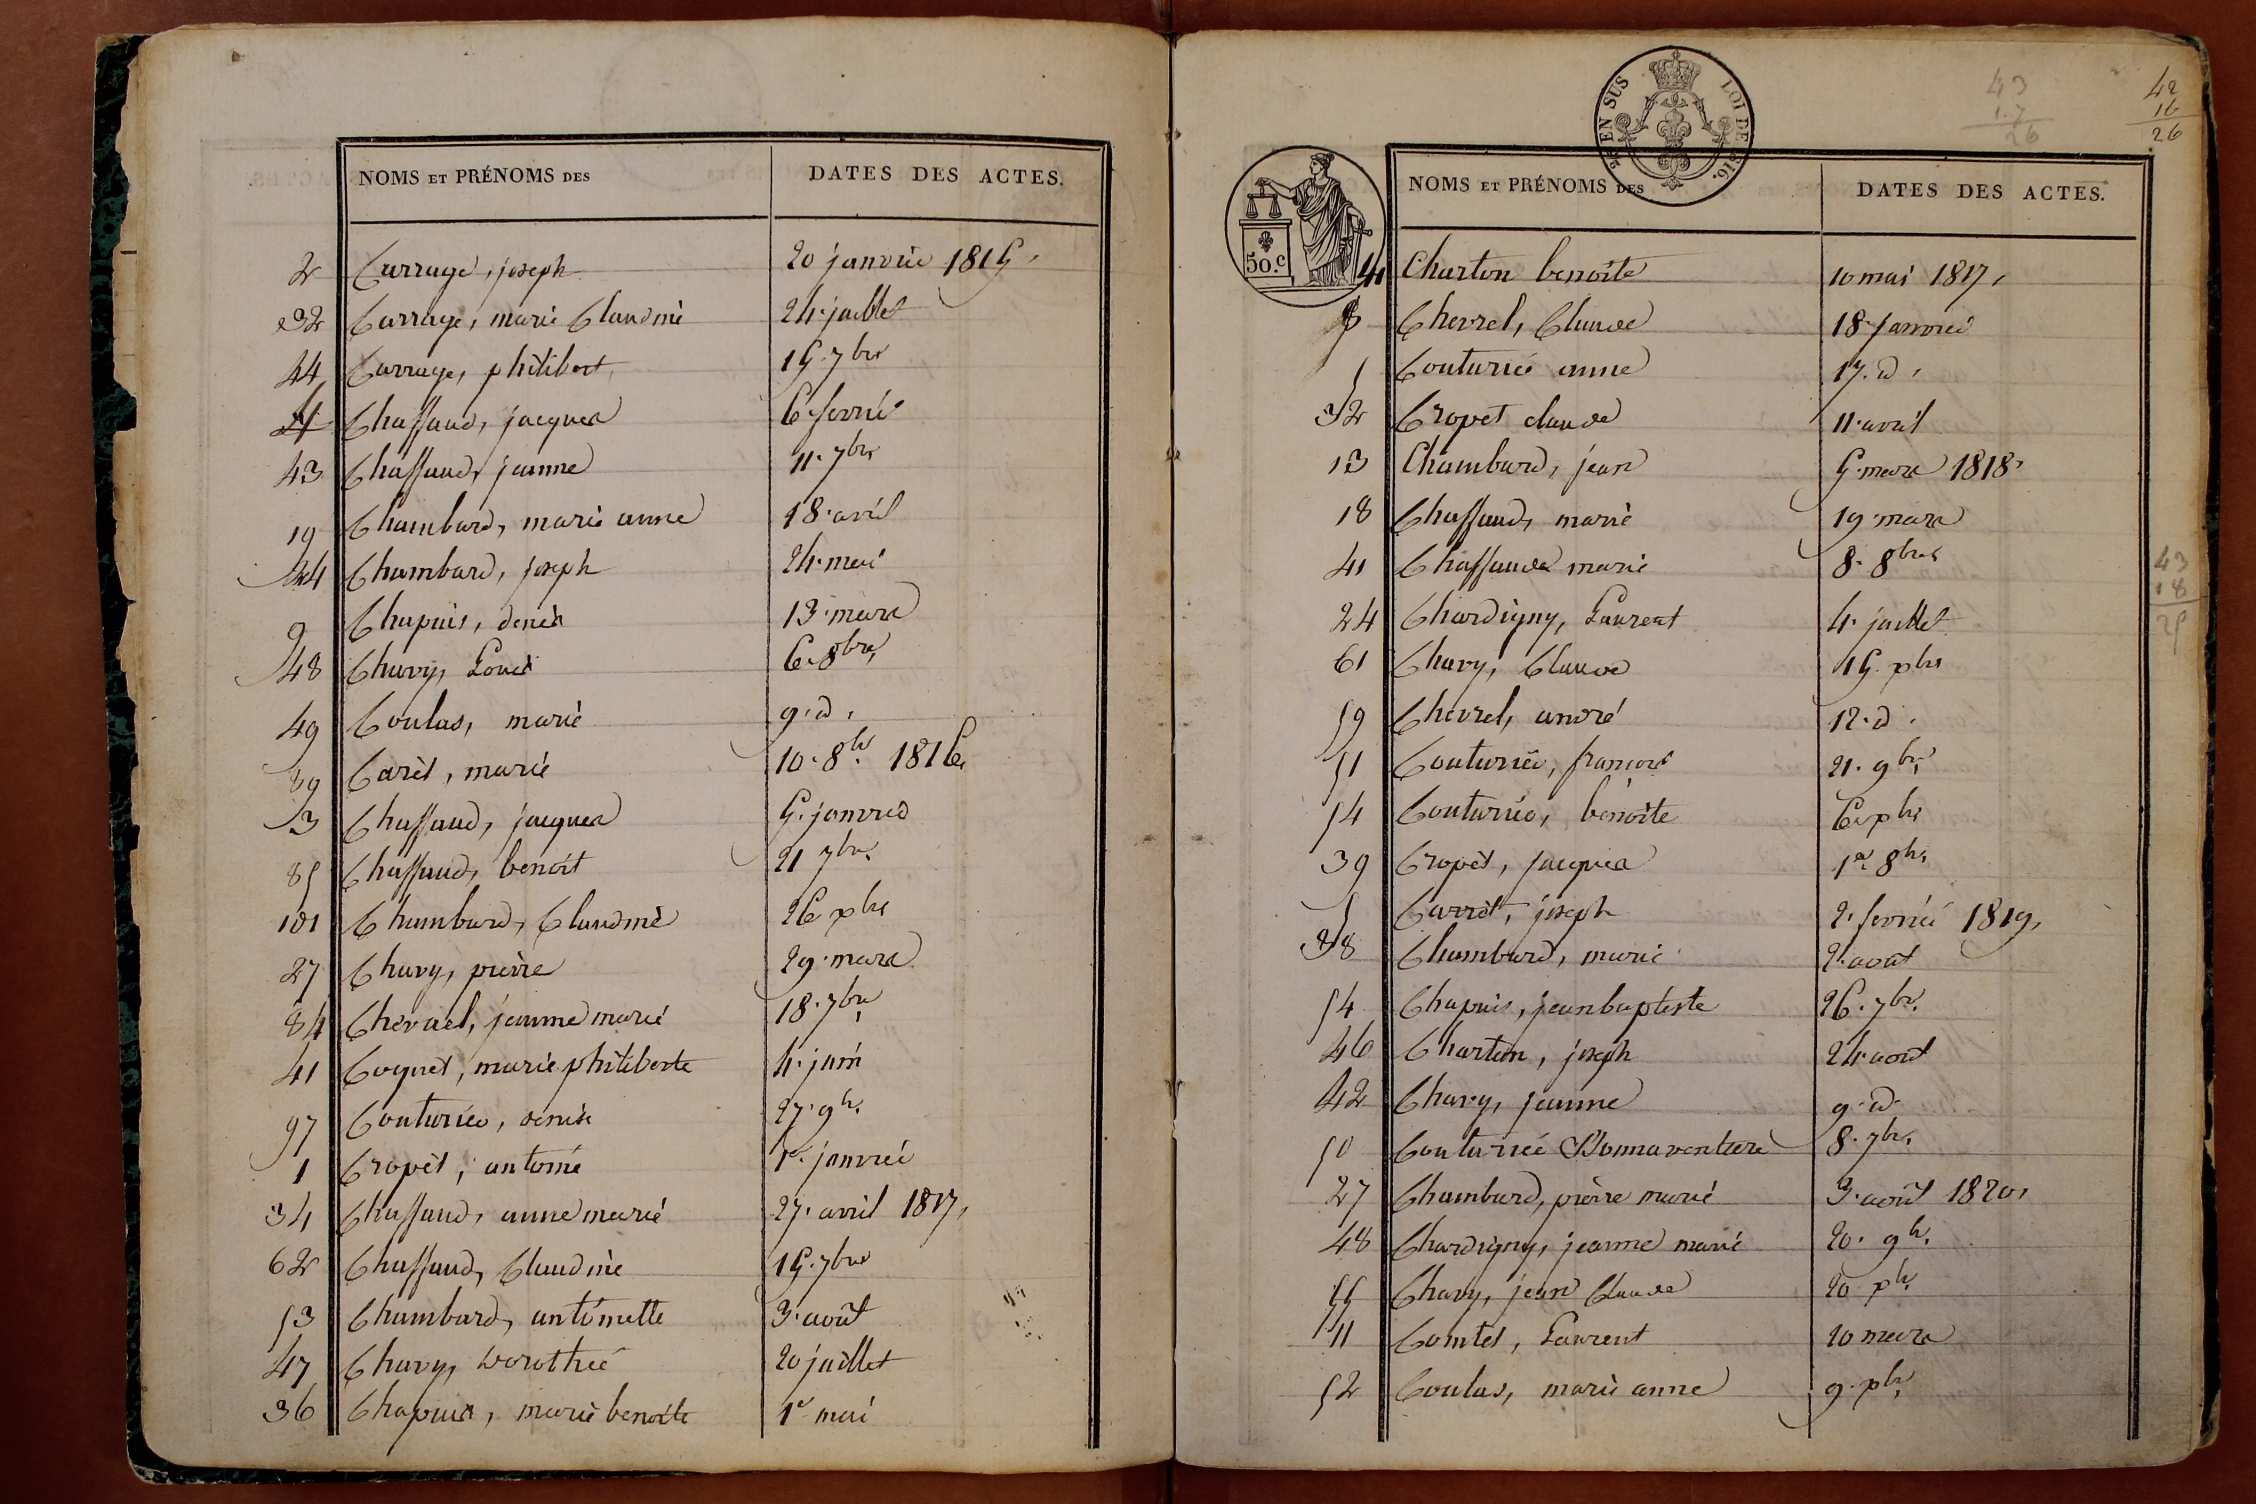 NOMS ET PRÉNOMS DES DATES DES ACTES.
2 Carrage, joseph 20 janvier 1815,
32 Carrage, marie Claudine 24. juillet
44 Carrage, philibert 15. 7bre
4 Chaffaud, jacques 6 fevrier
43 Chaffaud, jeanne 11. 7bre
19 Chambard, marie anne 18. avril
24 Chambard, joseph 24. mai
9 Chapuis, denis 13. mars
48 Chavy, Louis 6. 8bre,
49 Coulas, marie 9. d,
89 Carèt, marie 10. 8bre. 1816,
3 Chaffaud, jacques 5. janvier
85 Chaffaud, benoit 21 7bre.
101 Chambard, Claudine 26 xbre
27 Chavy, pierre 29. mars
84 Chevrel, jeanne marie 18. 7bre
41 Coquet, marie philiberte 4. juin
97 Couturier, denise 27. 9bre.
1 Cropèt, antoine 1er. janvier
34 Chaffaud, anne marie 27. avril 1817,
62 Chaffaud, Claudine 15. 7bre
53 Chambard, antoinette 3. août
47 Chavy, dorothée 20 juillet
36 Chapuis, marie benoite 1er mai
EN SUS LOI DE 1816.
50.c
43
17
26
42
16
26
NOMS ET PRÉNOMS DES DATES DES ACTES.
41 Charton benoite 10 mai 1817,
8 Chevrel, Claude 18. janvier
5 Couturier anne 17. d,
32 Cropet claude 11. avril
13 Chambard, jean 5. mars 1818,
18 Chaffaud, marie 19. mars
41 Chaffaud marie 8. 8bre
24 Chardigny, Laurent 4. juillet
61 Chavy, Claude 15. xbre
59 Chevrel, andré 12. d.
51 Couturier, francois 21. 9bre,
54 Couturier, benoite 6. xbre
39 Cropèt, jacques 1er 8bre,
5 Carrèt, joseph 2. fevrier 1819,
38 Chambard, marie 2. août
54 Chapuis, jean baptiste 26. 7bre.
46 Charton, joseph 24. août
42 Chavy, jeanne 9. d.
50 Couturier Bonnaventure 8. 7bre.
27 Chambard, pierre marie 3. août 1820,
48 Chardigny, jeanne marie 20. 9bre.
55 Chavy, jean Claude 20. xbre
11 Comtet, Laurent 20 mars
52 Coulas, marie anne 9. xbre,
43
18
25